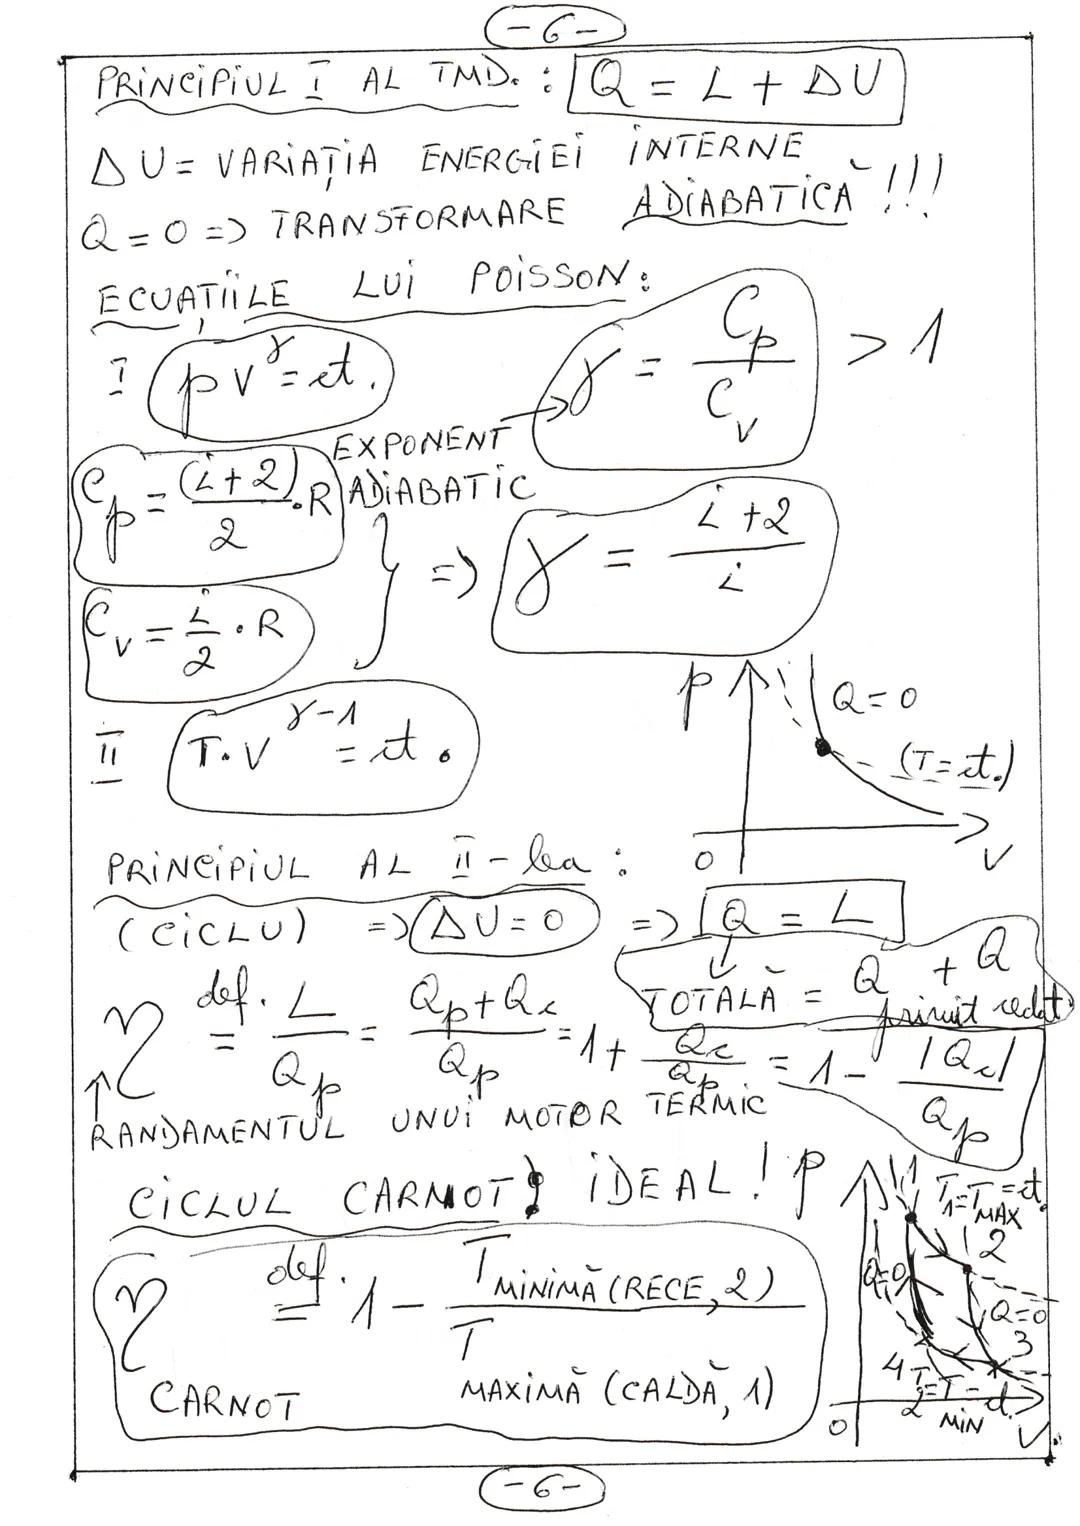 -6-
PRINCIPIUL I AL TMD. : Q = L + ΔU
ΔU = VARIAȚIA ENERGIEI INTERNE
Q = 0 => TRANSFORMARE ADIABATICĂ !!!
ECUAȚIILE LUI POISSON:
I pV^γ = ct. γ = Cp/Cv > 1
EXPONENT ADIABATIC
Cp = (i+2)/2 · R
Cv = i/2 · R
} => γ = (i+2)/i
II T·V^(γ-1) = ct.
p Q=0
(T=ct.)
0 V
PRINCIPIUL AL II-lea :
(CICLU) => ΔU = 0 => Q = L
TOTALĂ = Q primit + Q cedat
η def. = L/Qp = (Qp+Qc)/Qp = 1 + Qc/Qp = 1 - |Qc|/Qp
RANDAMENTUL UNUI MOTOR TERMIC
CICLUL CARNOT: IDEAL!
η CARNOT def. = 1 - T MINIMĂ (RECE, 2) / T MAXIMĂ (CALDĂ, 1)
p 1 T1=T MAX=ct.
2
Q=0 Q=0
3
4 T2=T MIN=ct.
0 V
-6-